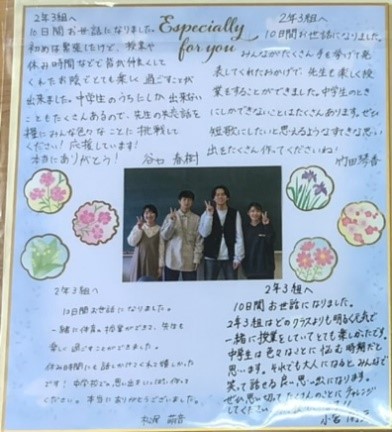 Especially
for you
2年3組へ
10日間お世話になりました。
初めは緊張したけど、授業や
休み時間などで皆が仲良くして
くれたお陰でとても楽しく過ごすことが
出来ました。中学生のうちにしか出来ない
こともたくさんあるので、先生の失恋話を
糧にみんな色々なことに挑戦して
ください！応援しています！
本当にありがとう！
谷口 春樹
2年3組へ
10日間お世話になりました。
みんながたくさん手を挙げて発
表してくれたおかげで、先生も楽しく授
業をすることができました。中学生のとき
にしかできないことはたくさんあります。ぜひ
短歌にしたいと思えるようなすてきな思い
出をたくさん作ってくださいね！
竹田 琴音
2年3組へ
10日間お世話になりました。
一緒に体育の授業ができて、先生も
楽しく過ごすことができました。
休み時間にも話しかけてくれて嬉しかった
です！中学校での思い出をいっぱい作って
ください。本当にありがとうございました。
萌音
2年3組へ
10日間お世話になりました。
2年3組はどのクラスよりも明るく元気で
一緒に授業をしていてとても楽しかったです。
中学生は色々なことに悩む時期だと
思います。それでも大人になると、みんなで
笑って話せる良い思い出になります。
ぜひ思い切ってたくさんのことにチャレンジ
してください！